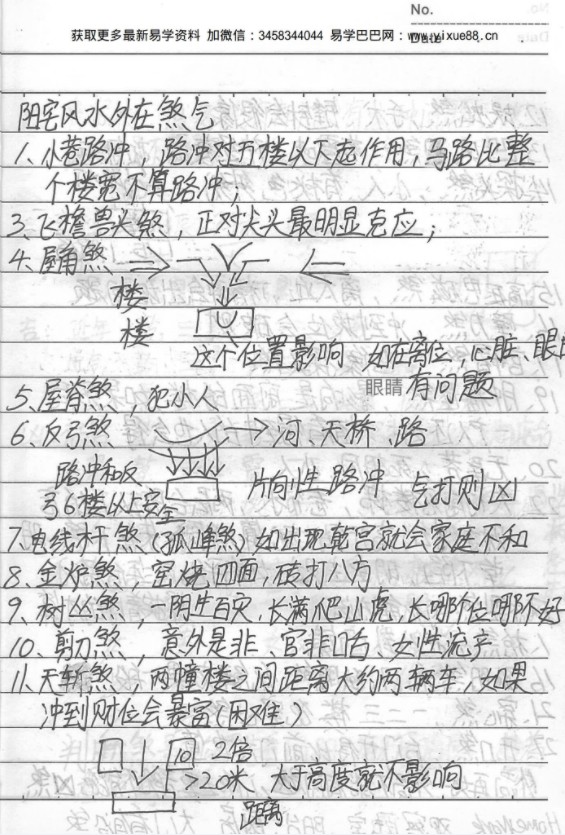 No.
获取更多最新易学资料 加微信：3458344044 易学巴巴网：www.yixue88.cn
Date
阳宅风水外在煞气
1、小巷路冲，路冲对万楼以下起作用，马路比整
个楼宽不算路冲；
3、飞檐兽头煞，正对尖头最明显克应；
4、屋角煞
楼
楼
这个位置影响 如在离位，心脏、眼
眼睛 有问题
5、屋脊煞，犯小人
6、反弓煞 河、天桥、路
路冲和反
弓6楼以上安全
片向性路冲 气打则凶
7、电线杆煞（孤峰煞）如出现乾宫就会家庭不和
8、金炉煞，窑烧四面，砖打八方
9、树丛煞，一阴生百灾，长满爬山虎，长哪个位哪不好
10、剪刀煞，意外是非、官非口舌、女性流产
11、天斩煞，两幢楼之间距离大约两辆车，如果
冲到财位会暴富（困难）
10 2倍
>20米 大于高度就不影响
距离